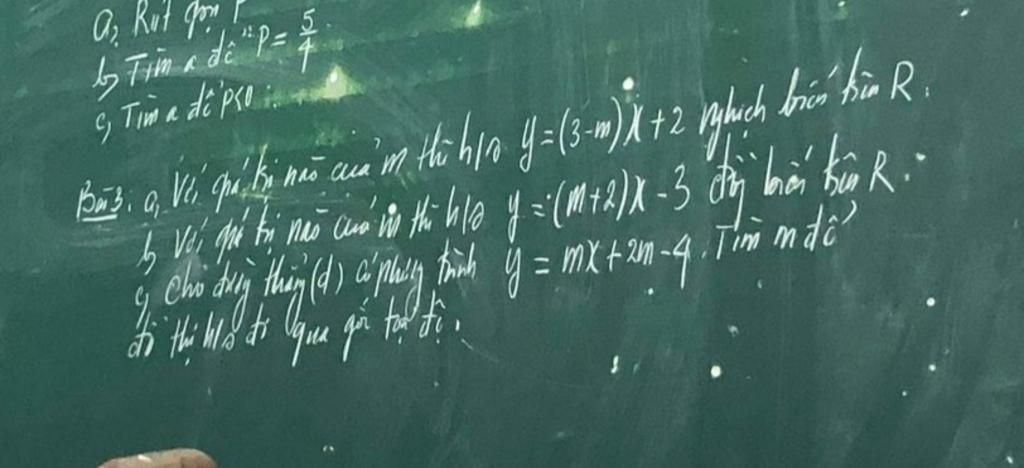 a, Rút gọn P
b, Tìm a để P = 5/4
c, Tìm a để P<0
Bài 3: a, Với giá trị nào của m thì h/s y=(3-m)x+2 nghịch biến trên R.
b, Với giá trị nào của m thì h/s y=(m+2)x-3 đồng biến trên R.
c, Cho đường thẳng (d) có phương trình y = mx+2m-4. Tìm m để
đồ thị h/s đi qua gốc tọa độ.